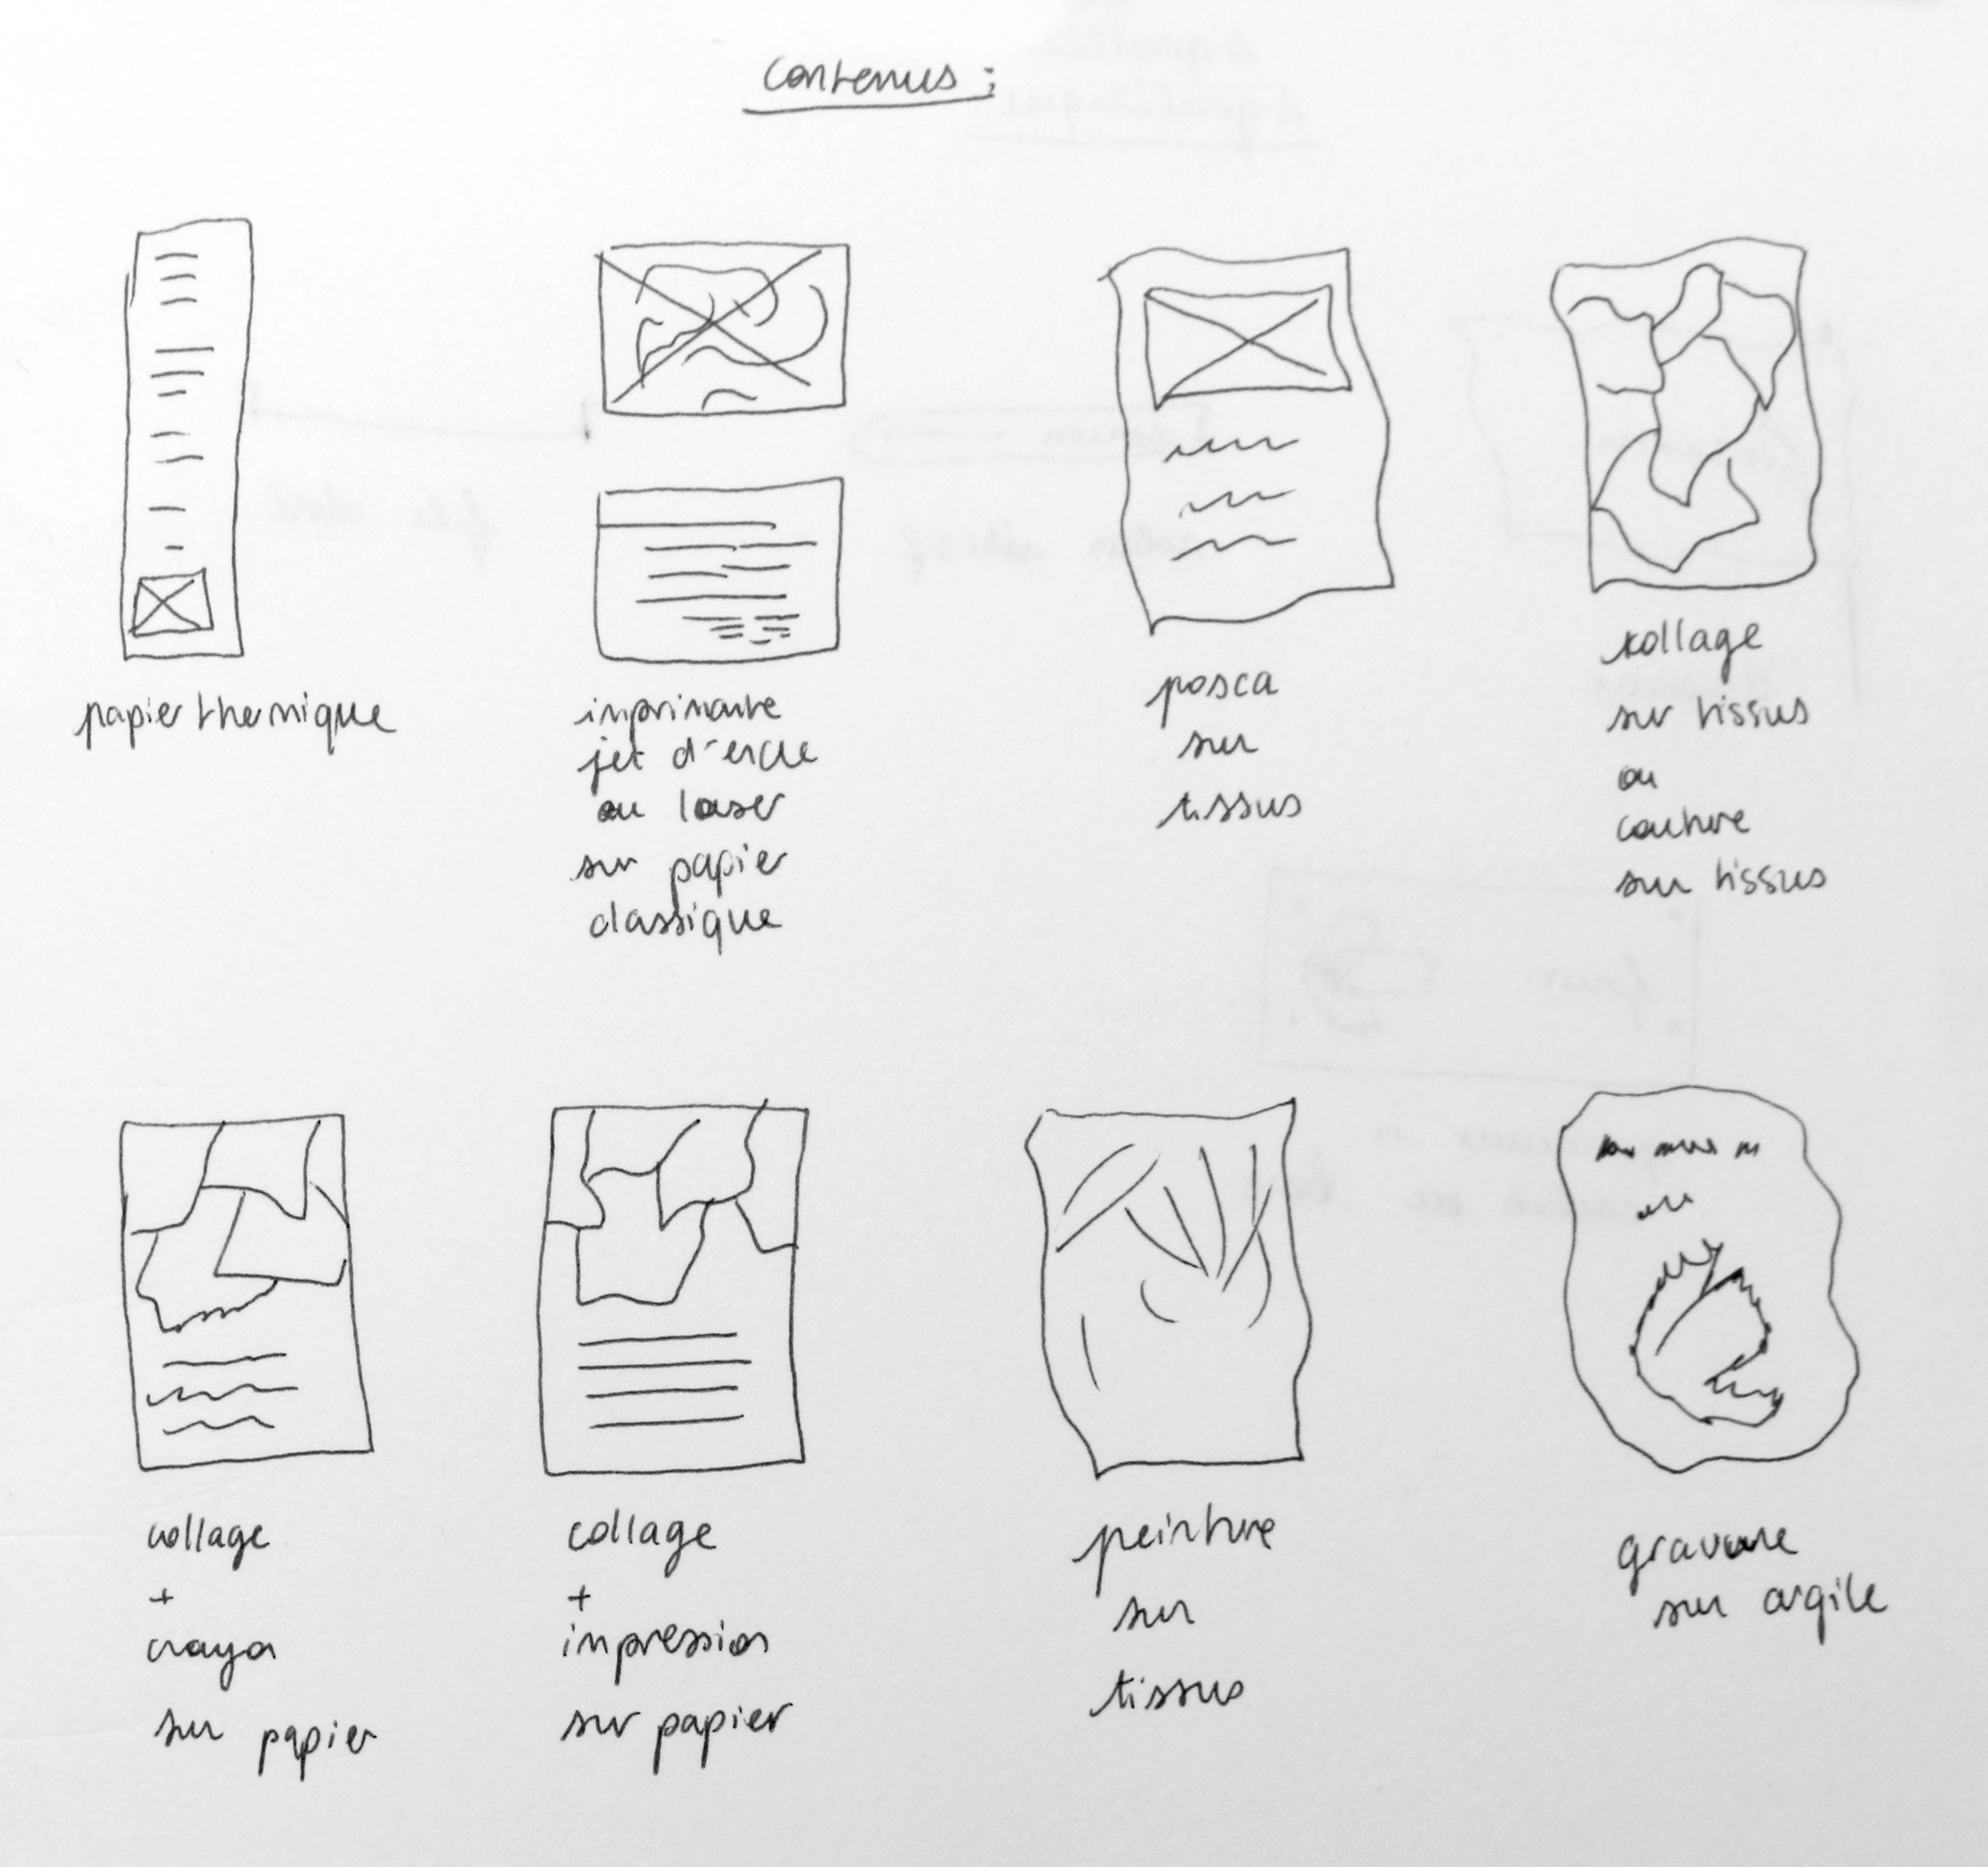 contenus :
papier thermique
imprimante
jet d'encre
ou laser
sur papier
classique
posca
sur
tissus
kollage
sur tissus
ou
couture
sur tissus
collage
+
crayon
sur papier
collage
+
impression
sur papier
peinture
sur
tissus
gravure
sur argile